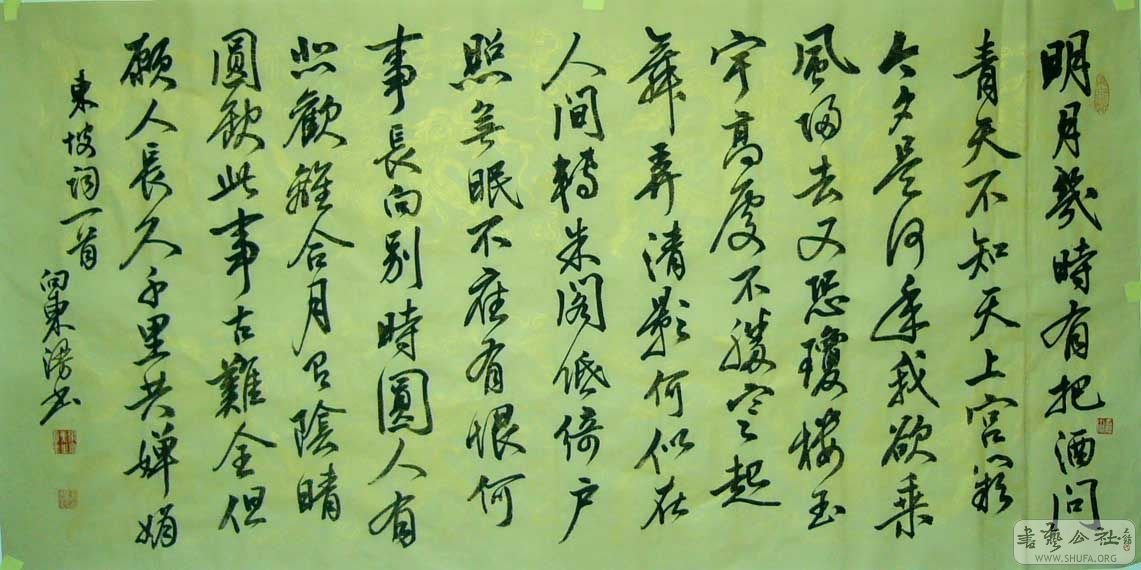 明月幾時有把酒问
青天不知天上宮闕
今夕是何年我欲乘
風歸去又恐瓊樓玉
宇高處不勝寒起
舞弄清影何似在
人间轉朱阁低倚户
照無眠不應有恨何
事長向别時圓人有
悲歡離合月有陰晴
圓缺此事古難全但
願人長久千里共嬋娟
東坡词一首
向東书
書藝公社
WWW.SHUFA.ORG